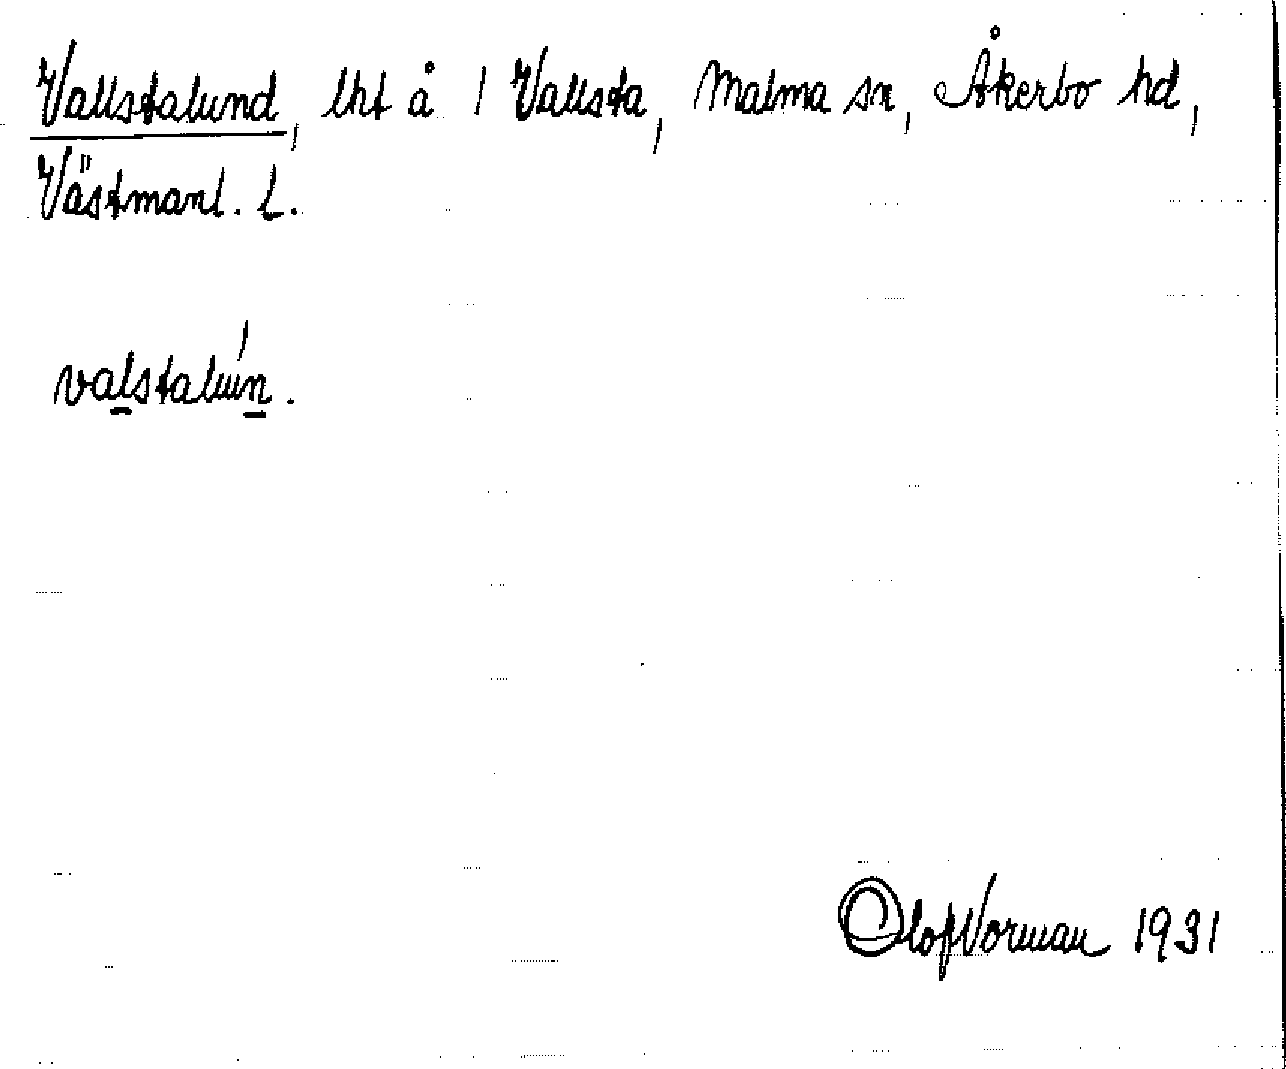 Vallstalund, lht å 1 Vallsta, Malma sn, Åkerbo hd,
Västmanl. l.
valstalún.
Olof Vorman 1931